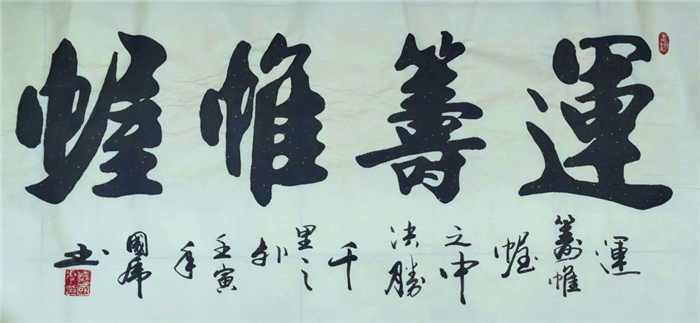 運籌帷幄
運
籌帷
幄
之中
决勝
千
里之
外
壬寅
年
國
书